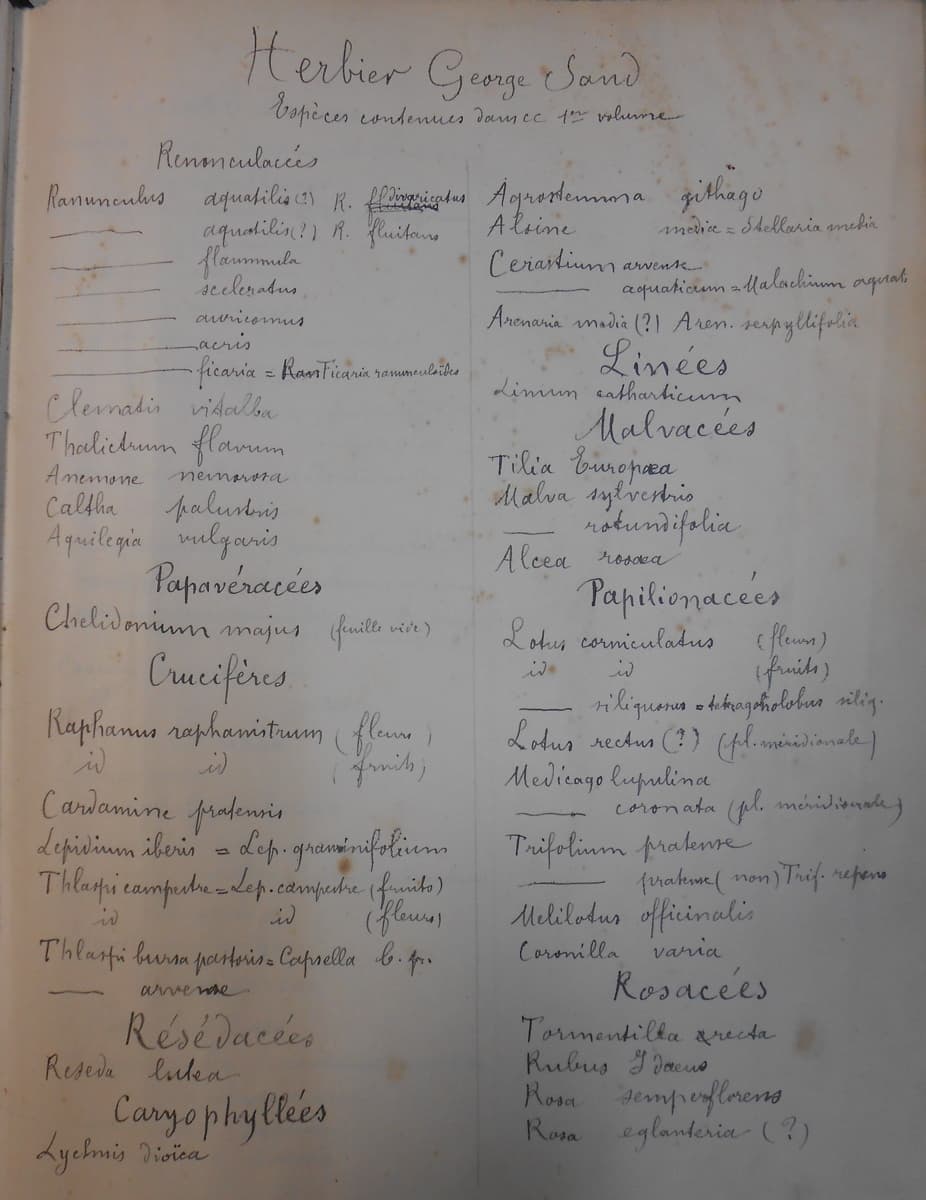 Herbier George Sand
Espèces contenues dans ce 1er volume
Renonculacées
Ranunculus aquatilis (?) R. divaricatus
——— aquatilis (?) R. fluitans
——— flammula
——— sceleratus
——— auricomus
——— acris
——— ficaria = Ficaria ranunculoïdes
Clematis vitalba
Thalictrum flavum
Anemone nemorosa
Caltha palustris
Aquilegia vulgaris
Papavéracées
Chelidonium majus (feuille vive)
Crucifères
Raphanus raphanistrum (fleurs)
id id (fruits)
Cardamine pratensis
Lepidium iberis = Lep. graminifolium
Thlaspi campestre = Lep. campestre (fruits)
id id (fleurs)
Thlaspi bursa pastoris = Capsella b. p.
——— arvense
Résédacées
Reseda lutea
Caryophyllées
Lychnis dioïca
Agrostemma githago
Alsine media = Stellaria media
Cerastium arvense
——— aquaticum = Malachium aquat.
Arenaria media (?) Aren. serpyllifolia
Linées
Linum catharticum
Malvacées
Tilia Europæa
Malva sylvestris
——— rotundifolia
Alcea rosæa
Papilionacées
Lotus corniculatus (fleurs)
id id (fruits)
——— siliquosus = tetragonolobus siliq.
Lotus rectus (?) (pl. méridionale)
Medicago lupulina
——— coronata (pl. méridionale)
Trifolium pratense
——— pratense (non) Trif. repens
Melilotus officinalis
Coronilla varia
Rosacées
Tormentilla erecta
Rubus Idaeus
Rosa semperflorens
Rosa eglanteria (?)